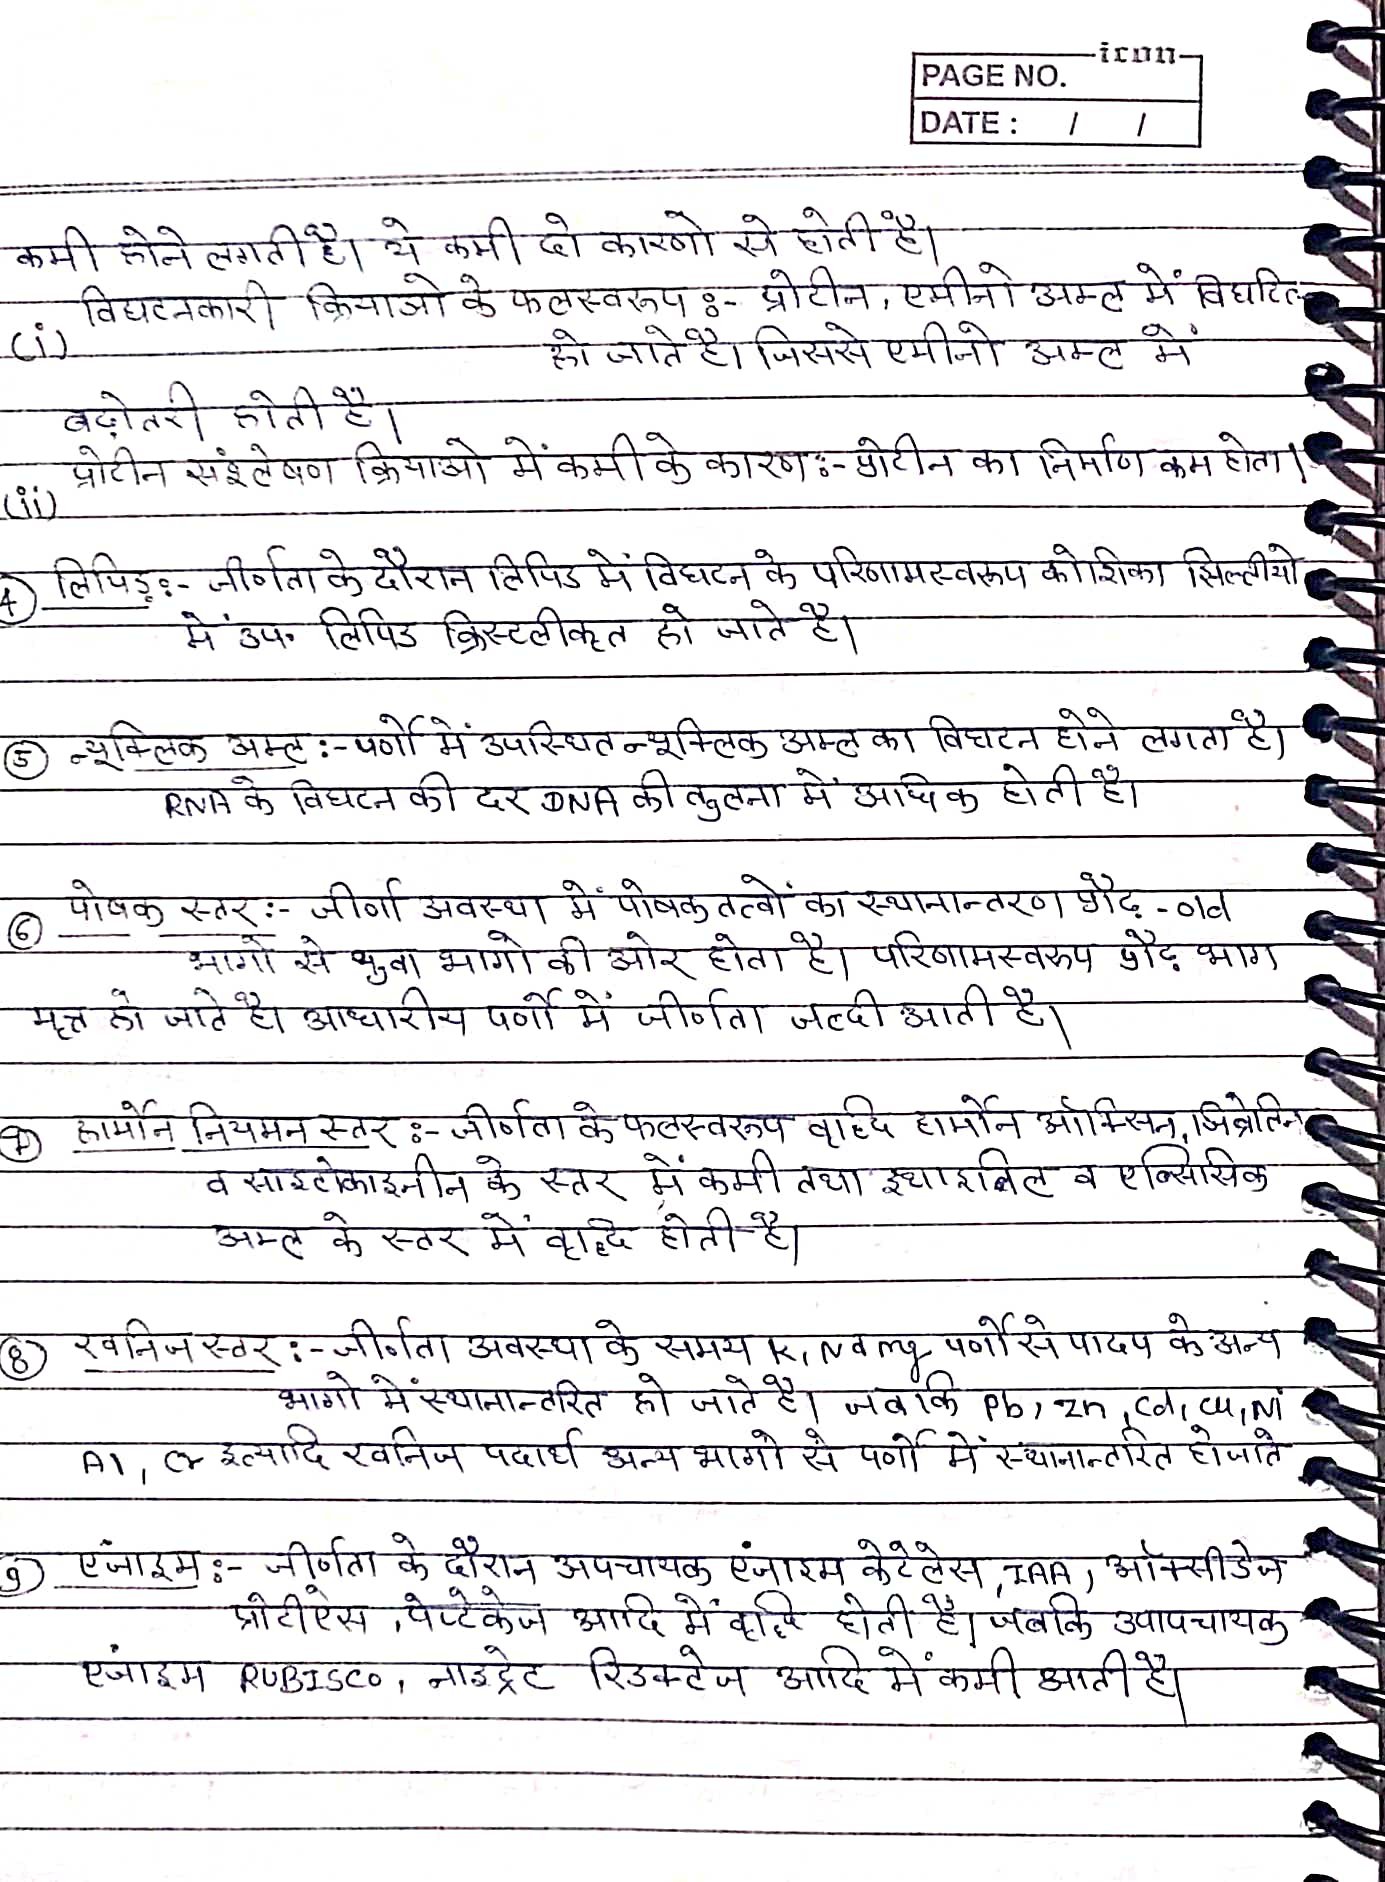 icon
PAGE NO.
DATE : / /
कमी होने लगती है। ये कमी दो कारणो से होती है।
(i) विघटनकारी क्रियाओ के फलस्वरूप :- प्रोटीन, एमीनो अम्ल में विघटित
हो जाते है। जिससे एमीनो अम्ल में
बढ़ोतरी होती है।
(ii) प्रोटीन संश्लेषण क्रियाओ में कमी के कारण :- प्रोटीन का निर्माण कम होता।
4) लिपिड़ :- जीर्णता के दौरान लिपिड में विघटन के परिणामस्वरूप कोशिका झिल्लीयो
में उप॰ लिपिड क्रिस्टलीकृत हो जाते है।
5) न्यूक्लिक अम्ल :- पर्णो में उपस्थित न्यूक्लिक अम्ल का विघटन होने लगता है।
RNA के विघटन की दर DNA की तुलना में अधिक होती है।
6) पोषक स्तर :- जीर्ण अवस्था में पोषक तत्वों का स्थानान्तरण प्रौढ़
भागों से युवा भागो की ओर होता है। परिणामस्वरूप प्रौढ़ भाग
मृत हो जाते है। आधारीय पर्णो में जीर्णता जल्दी आती है।
7) हार्मोन नियमन स्तर :- जीर्णता के फलस्वरूप वृद्दि हार्मोन ऑक्सिन, जिब्रेलिन
व साइटोकाइनीन के स्तर में कमी तथा इथाइलिन व एब्सिसिक
अम्ल के स्तर में वृद्दि होती है।
8) खनिज स्तर :- जीर्णता अवस्था के समय K, N व mg पर्णो से पादप के अन्य
भागो में स्थानान्तरित हो जाते है। जबकि Pb, Zn, Cd, Cu, Ni
Al, Cr इत्यादि खनिज पदार्थ अन्य भागो से पर्णो में स्थानान्तरित हो जाते
9) एंजाइम :- जीर्णता के दौरान अपचायक एंजाइम केटेलेस, IAA, ऑक्सीडेज
प्रोटीऐस, पेप्टेकेज आदि में वृद्दि होती है। जबकि उपापचायक
एंजाइम RUBISCO, नाइट्रेट रिडक्टेज आदि में कमी आती है।